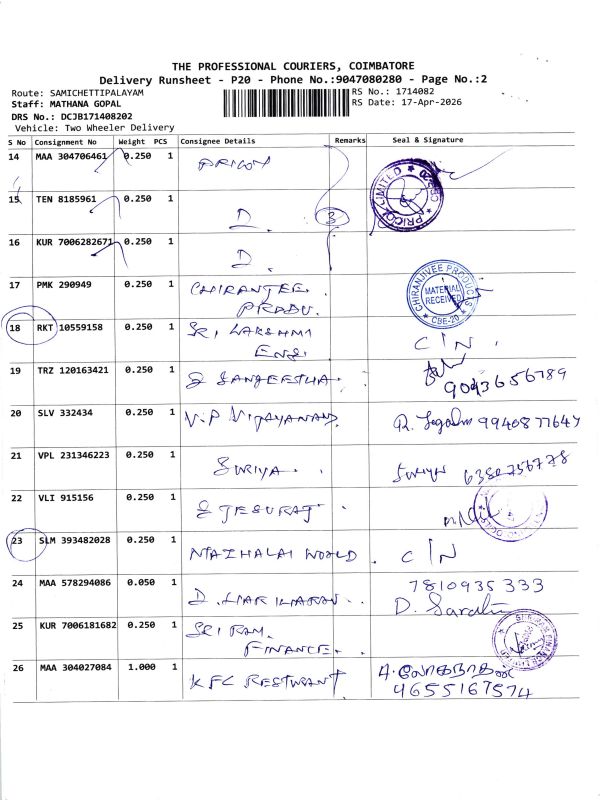 THE PROFESSIONAL COURIERS, COIMBATORE
Delivery Runsheet - P20 - Phone No.:9047080280 - Page No.:2
Route: SAMICHETTIPALAYAM
Staff: MATHANA GOPAL
DRS No.: DCJB171408202
Vehicle: Two Wheeler Delivery
RS No.: 1714082
RS Date: 17-Apr-2026
S No Consignment No Weight PCS Consignee Details Remarks Seal & Signature
14 MAA 304706461 0.250 1 PRICOL
15 TEN 8185961 0.250 1 D. 3
16 KUR 7006282671 0.250 1 D.
17 PMK 290949 0.250 1 CHIRANJEE PRABU. CHIRANJIVEE PRODUCTS MATERIAL RECEIVED CBE-20
18 RKT 10559158 0.250 1 SRI LAKSHMI ENG. C/N.
19 TRZ 120163421 0.250 1 S SANGEETHA. 9043656789
20 SLV 332434 0.250 1 V.P VIJAYANAND. 9940877647
21 VPL 231346223 0.250 1 SURIYA. Suriya 6380756778
22 VLI 915156 0.250 1 S JESURAJ
23 SLM 393482028 0.250 1 MAZHALAI WORLD. C/N
24 MAA 578294086 0.050 1 D. HARIHARAN. 7810935333
D. Sarathi
25 KUR 7006181682 0.250 1 SRI RAM. FINANCE.
26 MAA 304027084 1.000 1 KFC RESTURANT A.லோகநாதன்
9655167574